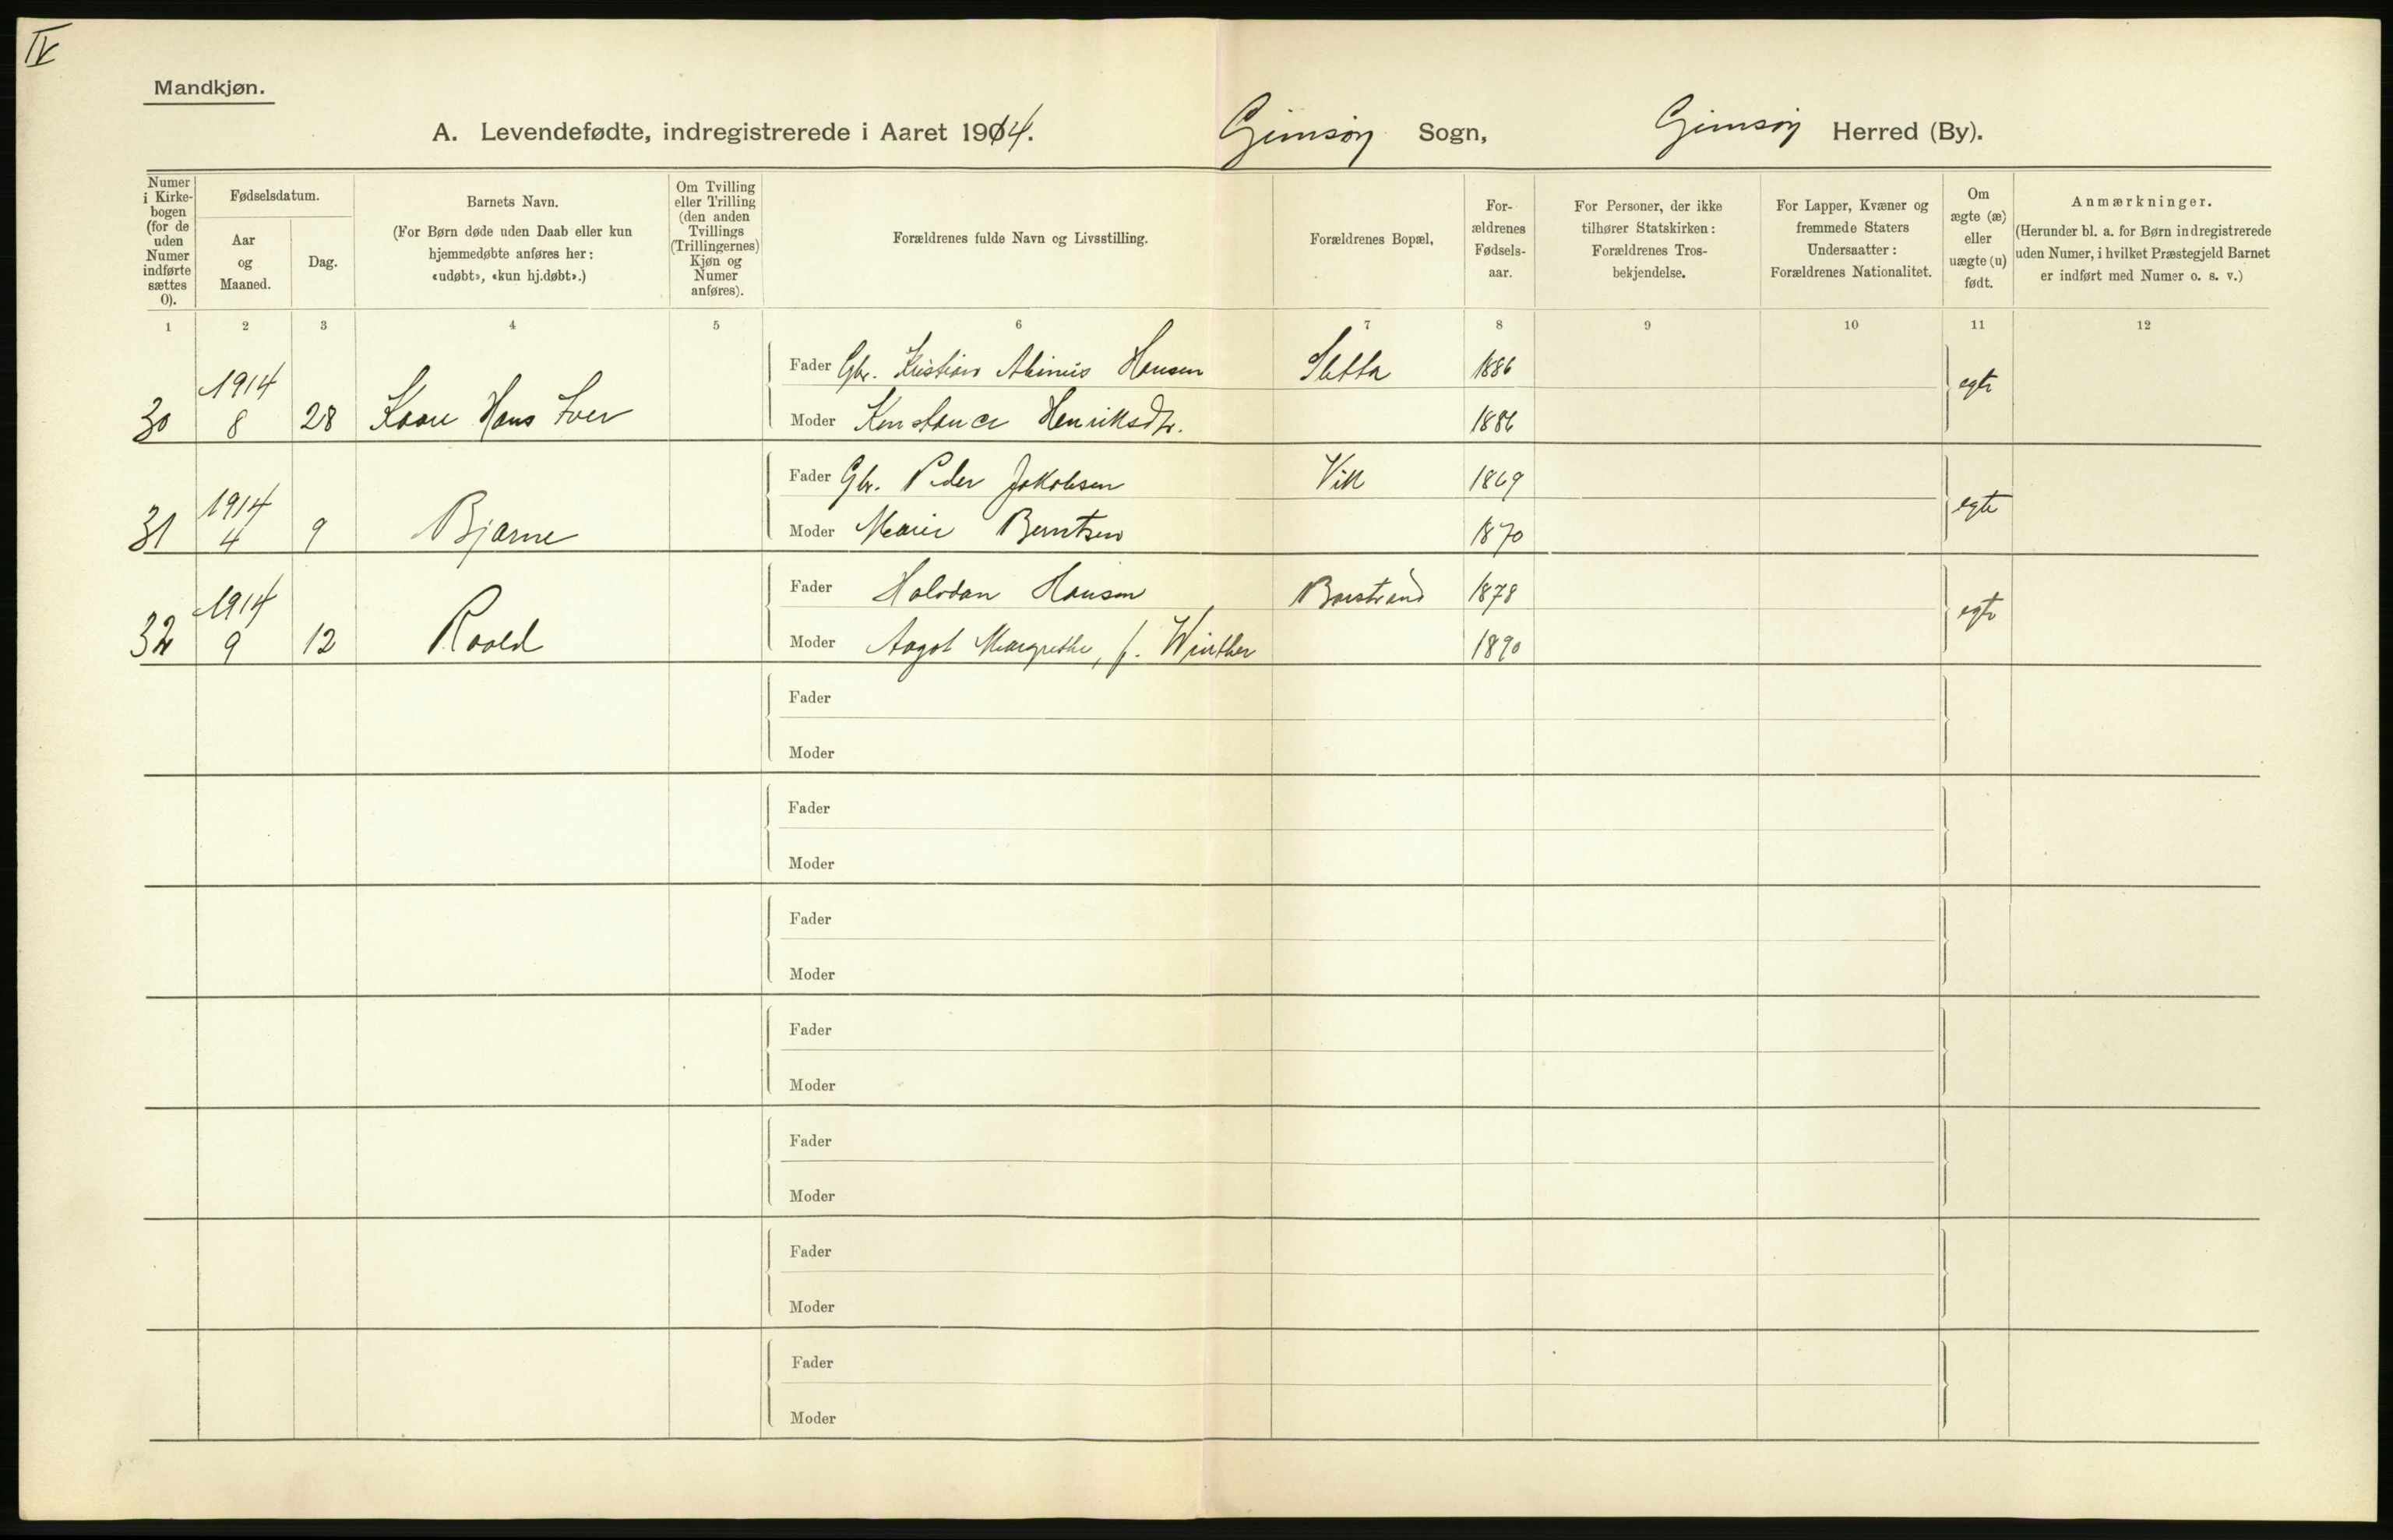 IV
Mandkjøn.
A. Levendefødte, indregistrerede i Aaret 1914. Gimsøy Sogn, Gimsøy Herred (By).
Numer i Kirkebogen (for de uden Numer indførte sættes 0).
Fødselsdatum.
Aar og Maaned.
Dag.
Barnets Navn.
(For Børn døde uden Daab eller kun
hjemmedøbte anføres her:
«udøbt», «kun hj.døbt».)
Om Tvilling
eller Trilling
(den anden
Tvillings
(Trillingernes)
Kjøn og
Numer
anføres).
Forældrenes fulde Navn og Livsstilling.
Forældrenes Bopæl,
For-
ældrenes
Fødsels-
aar.
For Personer, der ikke
tilhører Statskirken:
Forældrenes Tros-
bekjendelse.
For Lapper, Kvæner og
fremmede Staters
Undersaatter:
Forældrenes Nationalitet.
Om
ægte (æ)
eller
uægte (u)
født.
Anmærkninger.
(Herunder bl. a. for Børn indregistrerede
uden Numer, i hvilket Præstegjeld Barnet
er indført med Numer o. s. v.)
1 2 3 4 5 6 7 8 9 10 11 12
Fader Gbr. Kristian Hansen Sletta 1886
1914 egte
30 8 28 Kaare Hans Iver
Moder Konstance Henriksdtr. 1886
Fader Gbr. Peder Jakobsen Vik 1869
1914 egte
31 4 9 Bjarne
Moder Marie Berntsen 1870
Fader Halvdan Hansen 1878
1914 egte
32 9 12 Roald
Moder Aagot Margrethe, f. Winther 1890
Fader
Moder
Fader
Moder
Fader
Moder
Fader
Moder
Fader
Moder
Fader
Moder
Fader
Moder